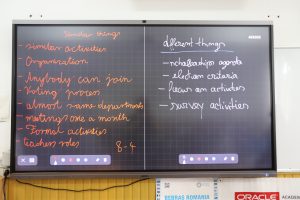 Similar things
- similar activities
- Organization
- Anybody can join
- Voting process
- almost same departments
- meetings once a month
- Formal activities
- teachers roles
8-4
different things
- scholarships agenda
- election criteria
- focus on activities
- survey activities
BEBRAS ROMANIA
ORACLE
ACADEMY